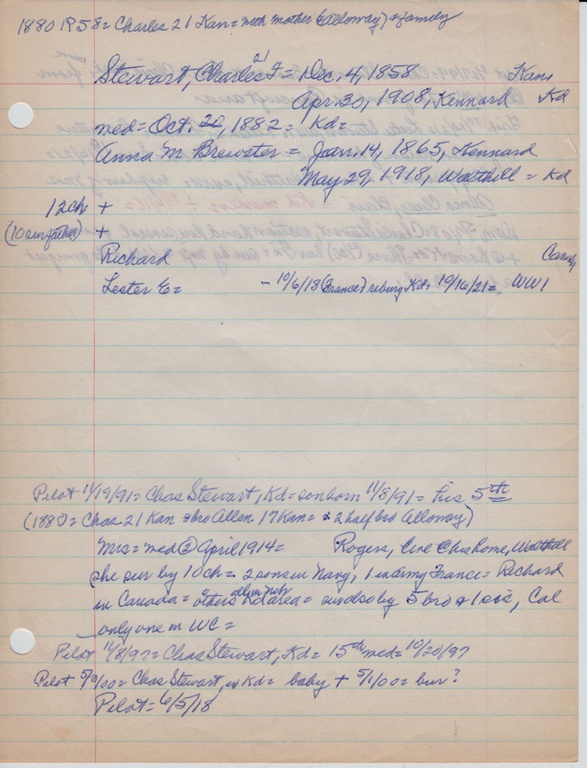 1880 P58 = Charles 21 Kan = with mother (Alloway) & family
21
Stewart, Charles F = Dec. 4, 1858 Kans
Apr. 30, 1908, Kennard Kd
med = Oct. 20, 1882 = Kd =
Anna M. Brewster = Jan. 14, 1865, Kennard
May 29, 1918, Walthill = Kd
12 ch +
(10 sur father) +
Richard Canada
Lester E = - 10/6/18 (France) rebury Kd = 10/16/21 = WW1
Pilot 11/19/91 = Chas Stewart, Kd = son born 11/8/91 = his 5th
(1880 = Chas 21 Kan & bro Allen 17 Kan = & 2 half bro Alloway)
Mrs = med ② April 1914 = Rogers, live Chis home, Walthill
she sur by 10 ch = 2 sons in Navy, 1 in Army France = Richard
in Canada = others all in Neb Kd area = sur also by 5 bro & 1 sis, Cal
only one in WC =
Pilot 11/8/97 = Chas Stewart, Kd = 15th med = 10/20/97
Pilot 5/9/00 = Chas Stewart, Kd = baby + 5/1/00 = bur?
Pilot = 6/5/18